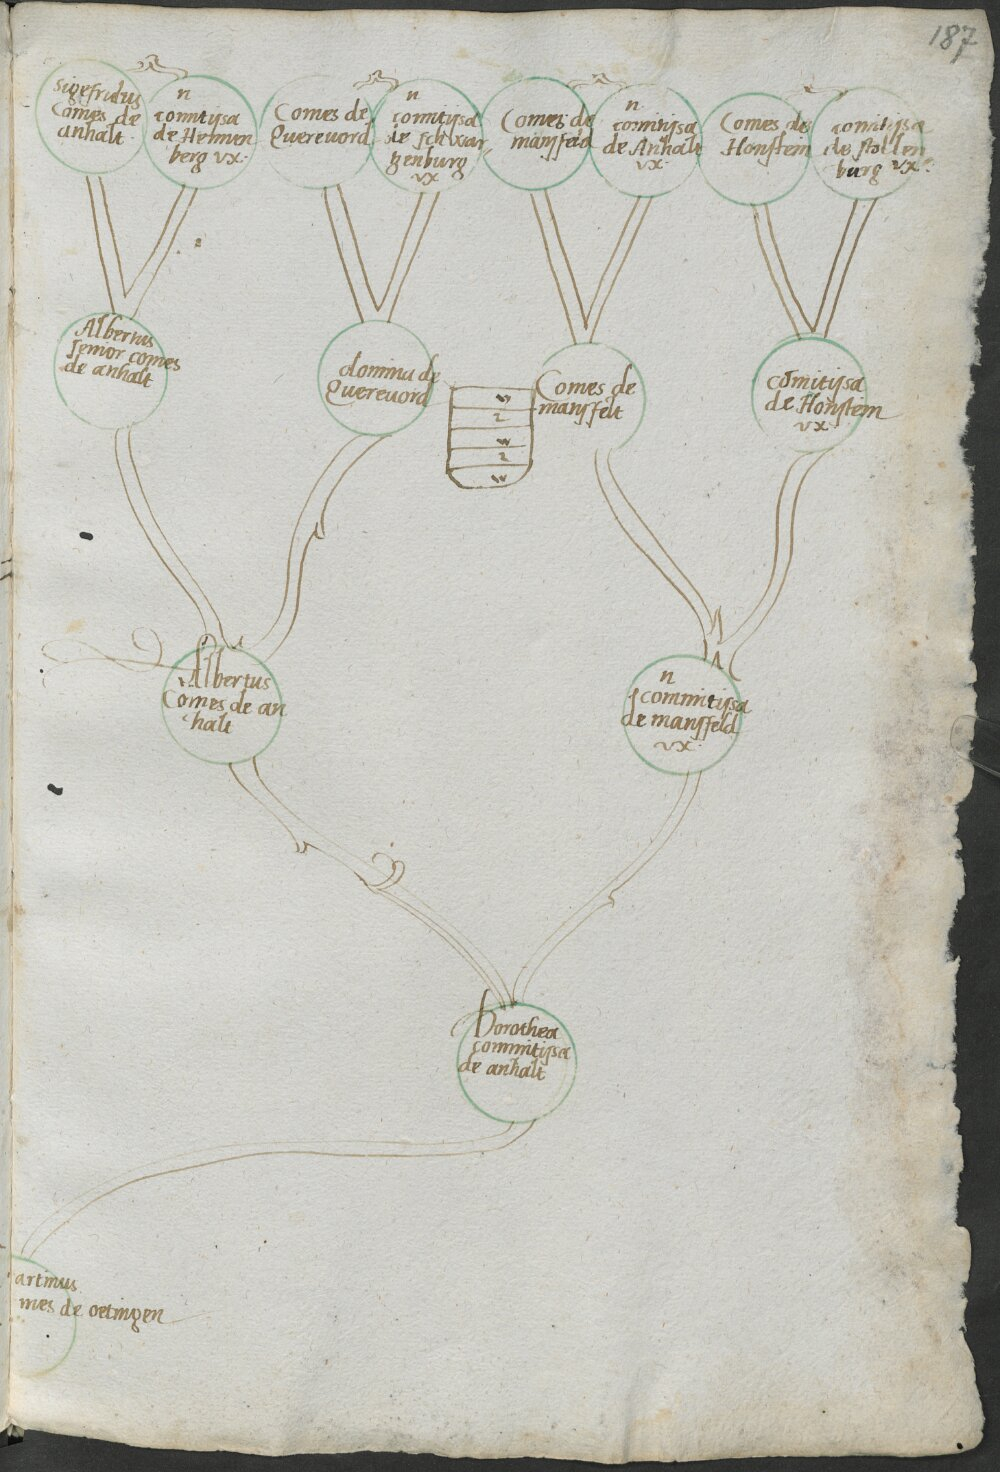 187
Sigefridus
Comes de
anhalt
n
comitissa
de Hennen
berg vx.
Comes de
Querevord
n
comitissa
de schwar
tzenburg
vx
Comes de
mansfeld
n
comitissa
de Anhalt
vx
Comes de
Honstein
comitissa
de stollen
burg vx.
Albertus
senior comes
de anhalt
domina de
Querevord
Comes de
mansfelt
comitissa
de Honstein
vx
w
2
w
2
w
Albertus
Comes de an
halt
n
commitissa
de mansfeld
vx.
Dorothea
commitissa
de anhalt
artinus
mes de oetingen